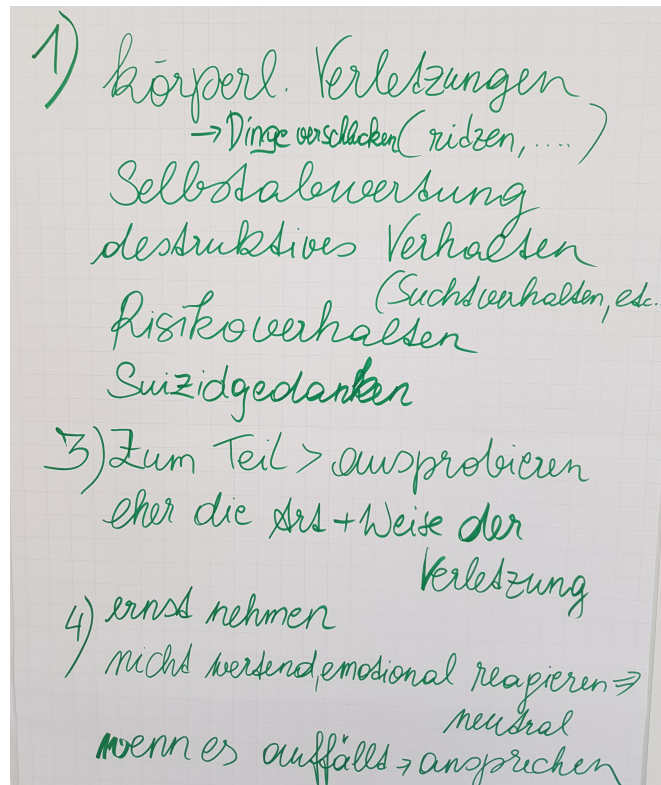 1) körperl. Verletzungen
→ Dinge verschlucken (ridzen, ....)
Selbstabwertung
destruktives Verhalten
(Suchtverhalten, etc..
Risikoverhalten
Suizidgedanken
3) Zum Teil > ausprobieren
eher die Art + Weise der
Verletzung
4) ernst nehmen
nicht wertend, emotional reagieren ⇒
neutral
wenn es auffällt → ansprechen